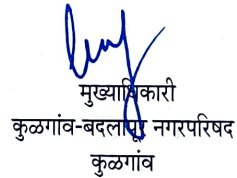 मुख्याधिकारी
कुळगांव-बदलापूर नगरपरिषद
कुळगांव